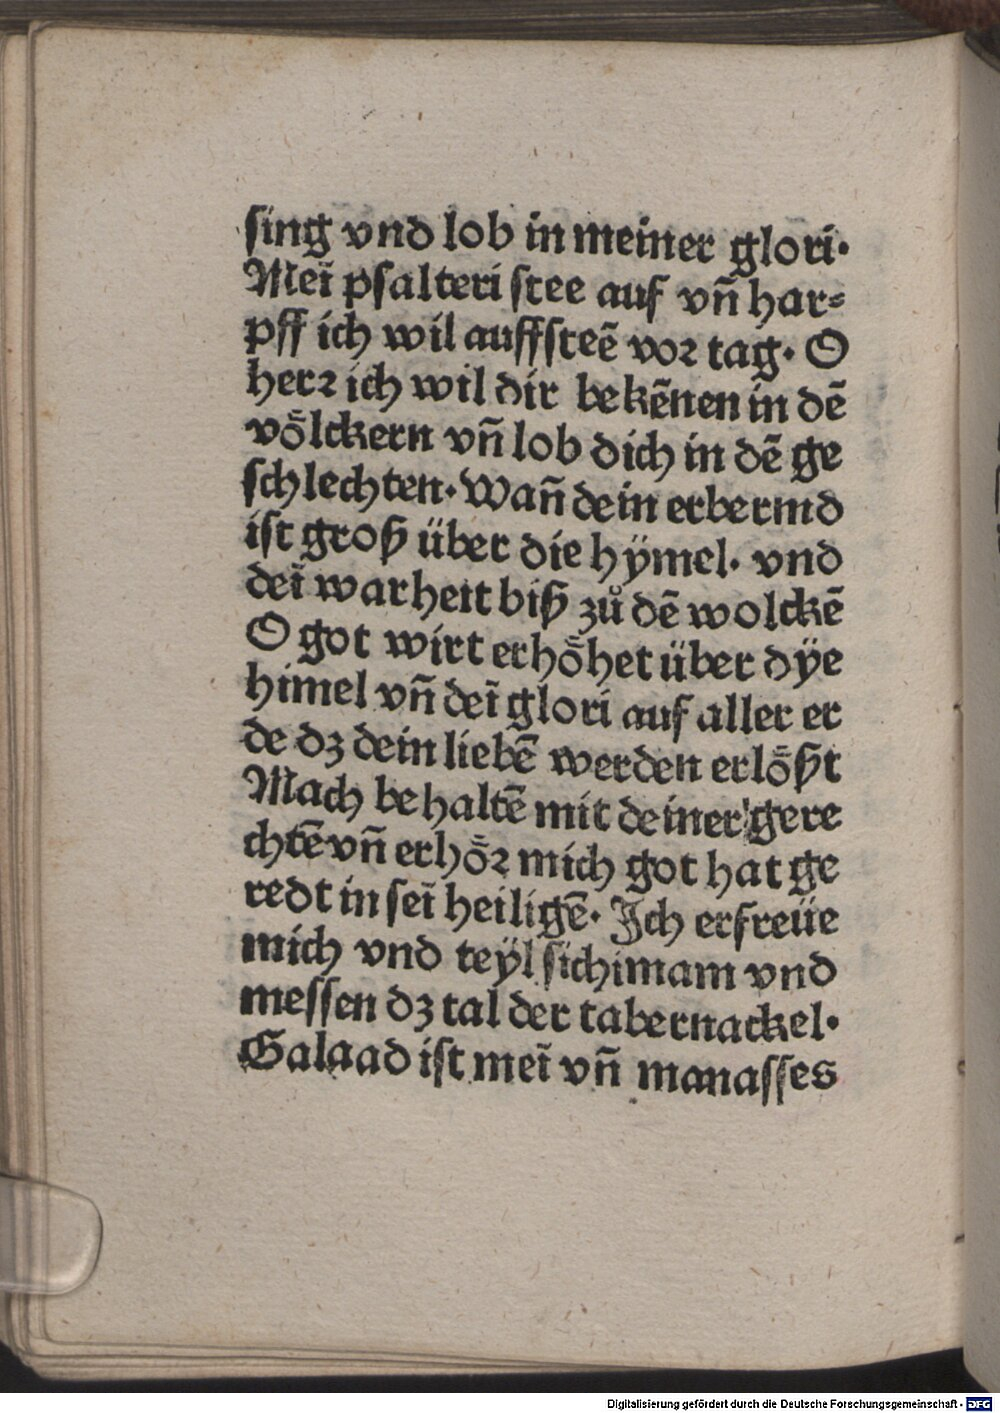 sing vnd lob in meiner glori.
Meī psalteri stee auf vn̄ har⸗
pff ich wil auffsteē vor tag. O
herr ich wil dir bekēnen in dē
voͤlckern vn̄ lob dich in dē ge
schlechten. Wan̄ dein erbermd
ist groß über die hÿmel. vnd
deī warheit biß zuͦ dē wolckē
O got wirt erhoͤhet über dÿe
himel vn̄ deī glori auf aller er
de dz dein liebē werden erloͤßt
Mach behaltē mit deiner gere
chtē vn̄ erhoͤr mich got hat ge
redt in seī heiligē. Ich erfreüe
mich vnd teÿl sichimam vnd
messen dz tal der tabernackel.
Galaad ist meī vn̄ manasses
Digitalisierung gefördert durch die Deutsche Forschungsgemeinschaft - DFG